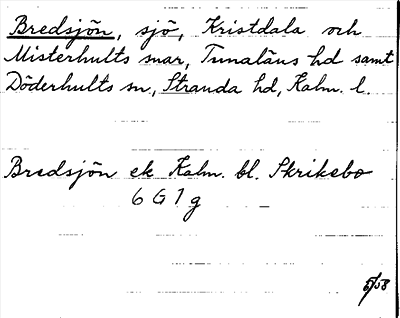 Bredsjön, sjö, Kristdala och
Misterhults snar, Tunaläns hd samt
Döderhults sn, Stranda hd, Kalm. l.
Bredsjön ek Kalm. bl. Skrikebo
6 G 1 g
5/58